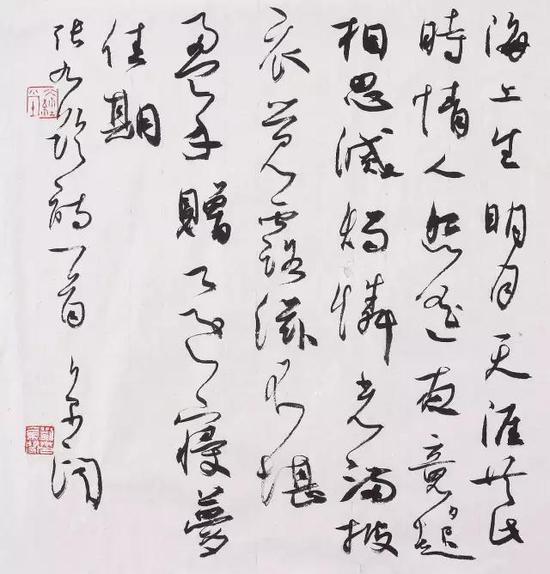 海上生明月天涯共此
時情人怨遙夜竟夕起
相思滅燭憐光滿披
衣覺露滋不堪
盈手贈還寢夢
佳期
張九齡詩一首